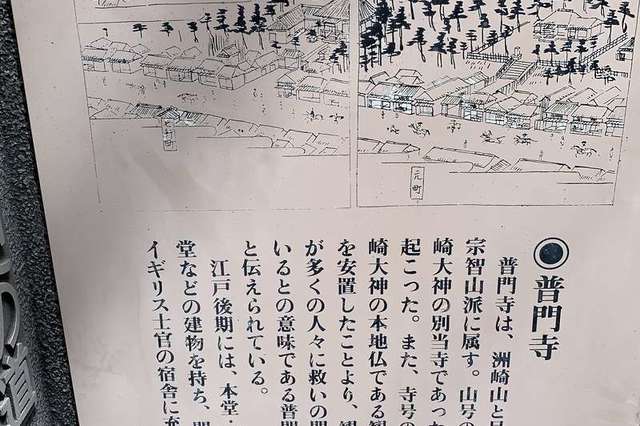 元町
◉普門寺
普門寺は、洲崎山と
宗智山派に属す。山号の
崎大神の別当寺であっ
起こった。また、寺号の
崎大神の本地仏である
を安置したことより、
が多くの人々に救いの
いるとの意味である普
と伝えられている。
江戸後期には、本堂・
堂などの建物を持ち、
イギリス士官の宿舎に充
の道